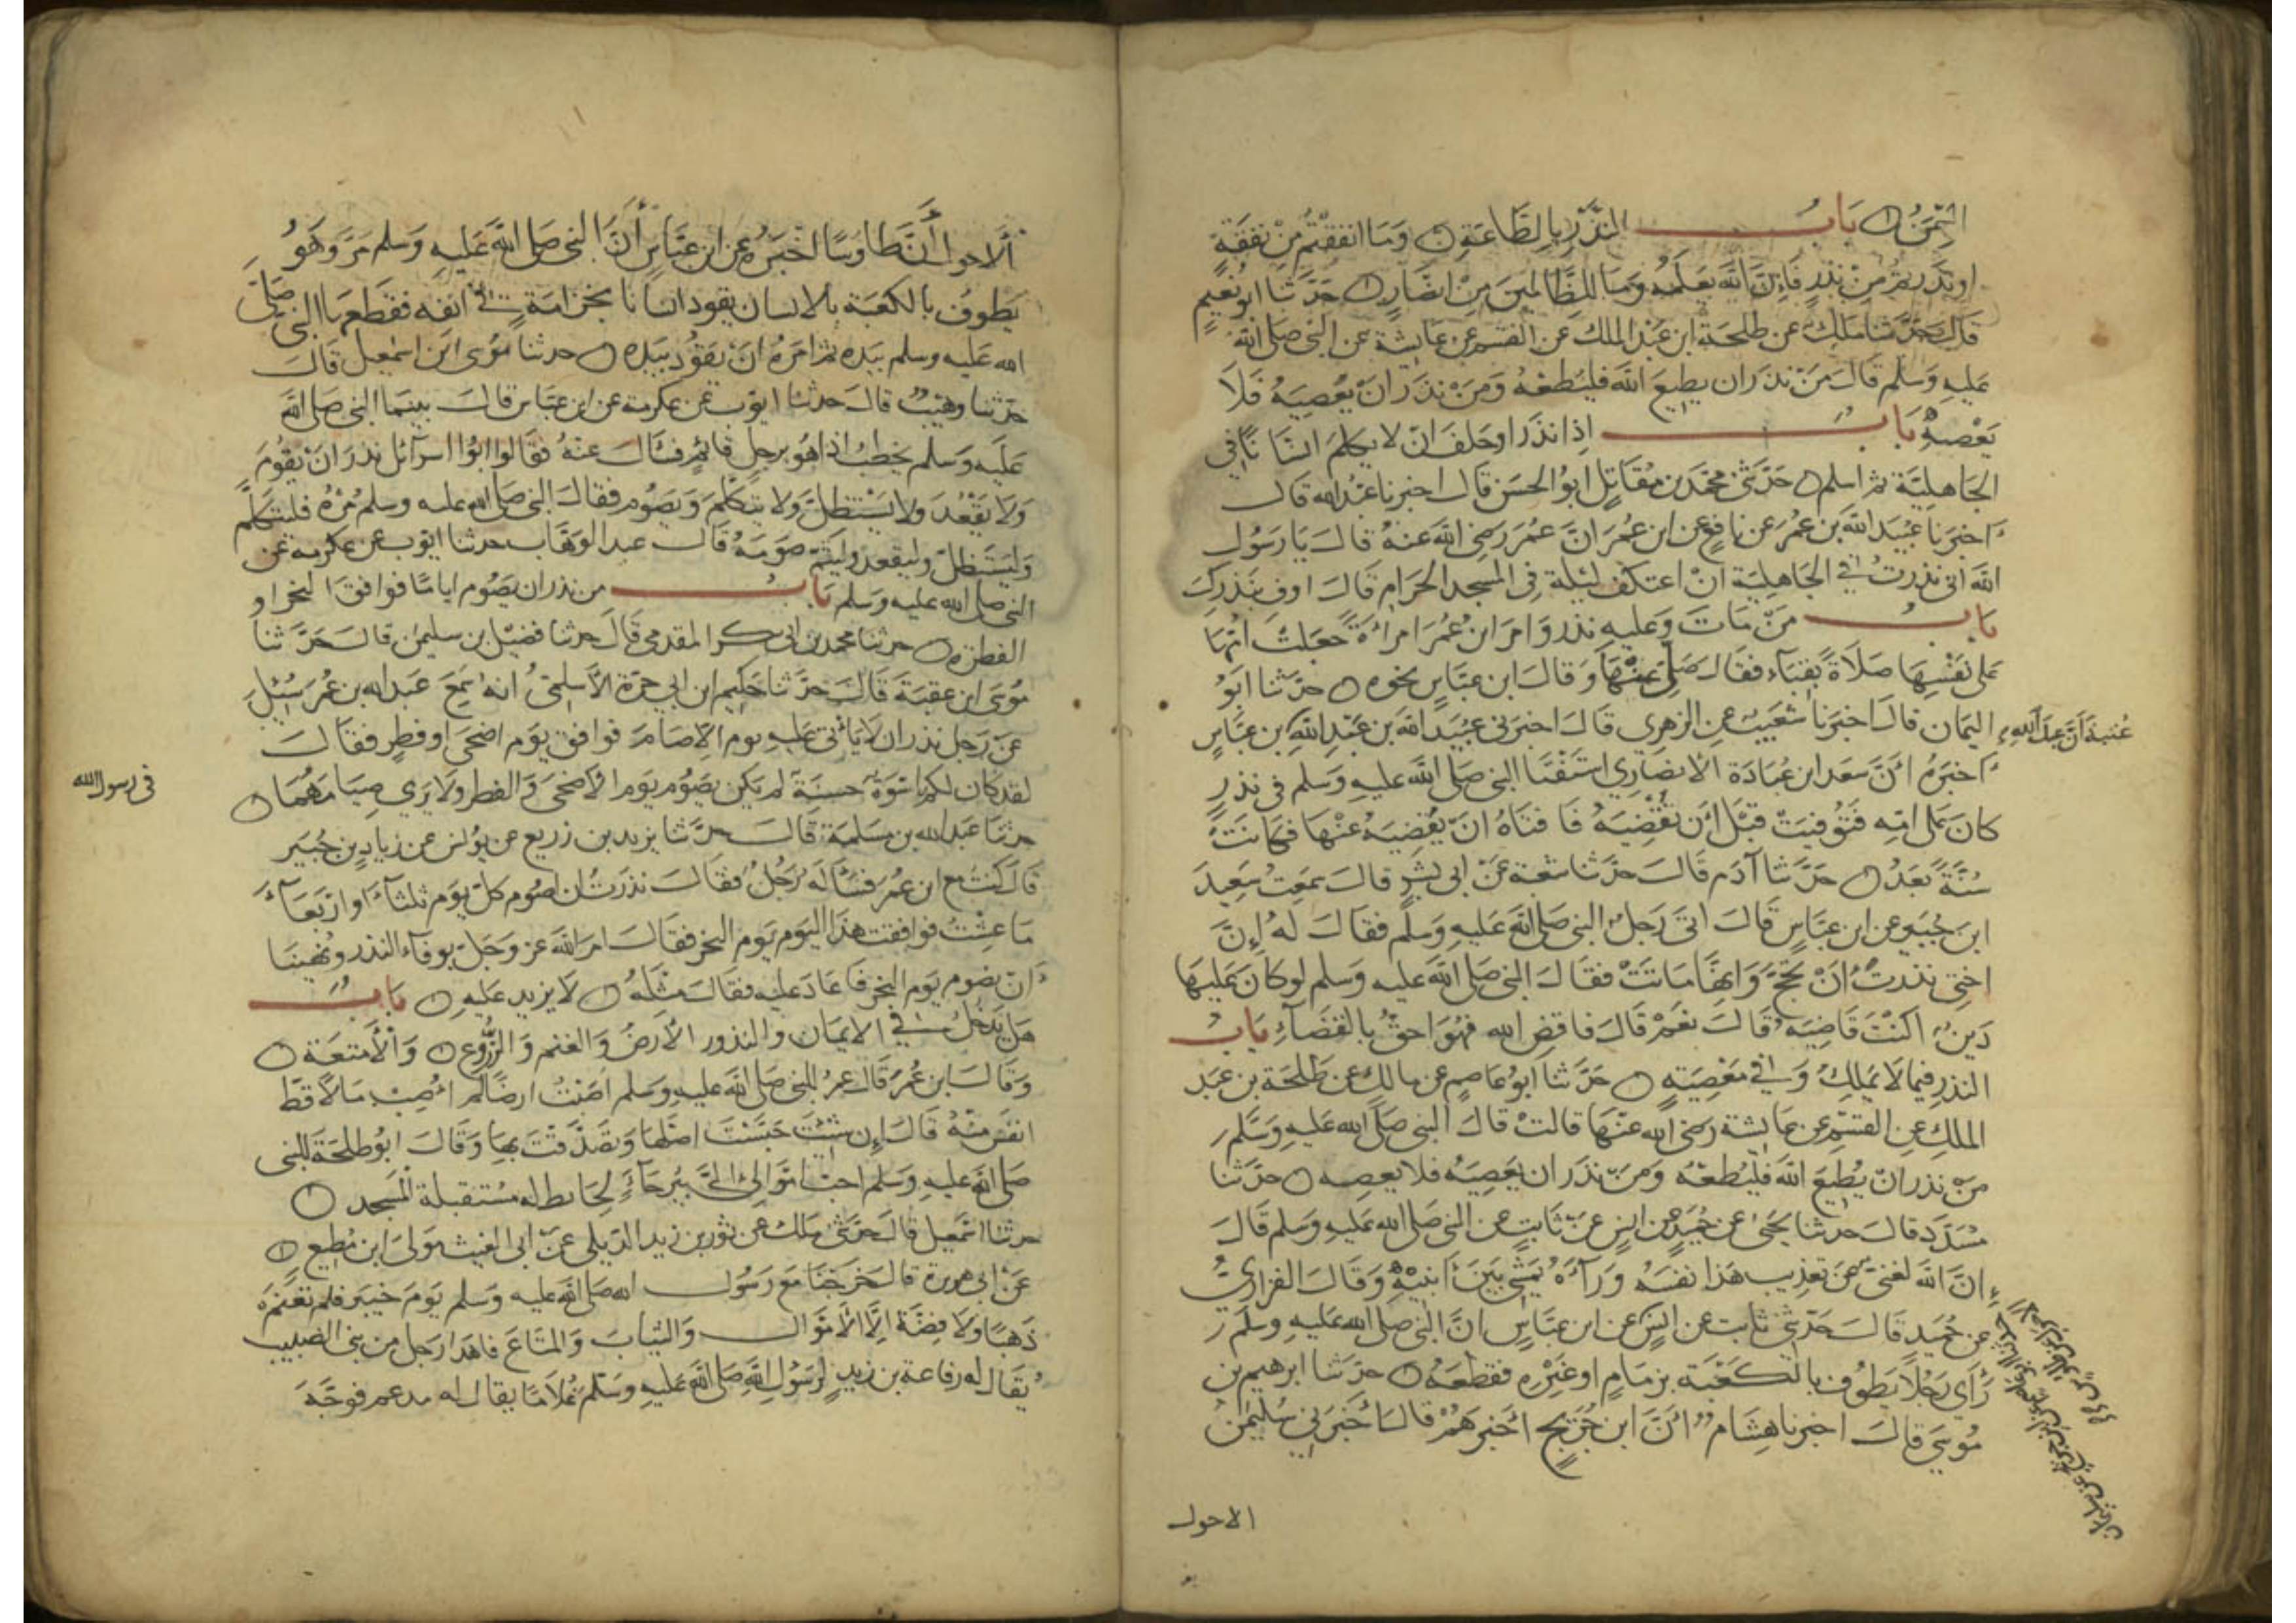 السِّمَنُ بَابُ النَّذْرِ بِالطَّاعَةِ وَمَا انفقْتُم مِنْ نَفَقَةٍ
او نَذَرتمْ مِنْ نذرٍ فَاِنَّ الله يَعلَمُهُ وَمَا للظَّالِمِينَ مِنْ انصَارٍ حَدَّثنا ابو نُعَيمٍ
قَالَ حَدَّثنا ملك عن طلحة ابن عَبْد الملك عن القسم عن عايشة عن النبى صلى الله
عليهِ وَسَلم قَالَ مَنْ نذَرَ ان يطيعَ الله فليُطعْهُ وَمَنْ نذَرَ انْ يَعْصِيَهُ فَلاَ
يَعْصِهِ بَابُ اِذا نذَرَ اوحَلفَ انْ لا يكلمَ انسَانًا فى
الجَاهِليَّة ثم اسلم حَدَّثنى محمَّد بن مُقَاتِل ابوُ الحسَن قالَ اخبرنا عَبْد الله قَال
اَخبَرنَا عبَيْد الله بن عُمَر عن نافعٍ عن ابن عُمَر اَنَّ عُمَر رَضى الله عَنهُ قالَ يَا رَسُول
الله انى نذرتُ فى الجَاهِليَة اَنْ اعتكفَ ليْلة فى المسجد الحَرَام قَالَ اوف بنَذرِكَ
بَابُ مَنْ مَاتَ وَعليهِ نذر وَامَرَ ابنُ عُمَرَ امرأةً جَعَلتْ امُّهَا
عَلى نَفْسِهَا صَلَاةً بقبَاء فقالَ صَلى عَنْهَا وَقَالَ ابن عَبَّاسٍ نحوه حدّثنا ابوُ
اليَمان قالَ اخبَرنا شُعَيبٌ عن الزهرِى قَالَ اخبرَنى عبَيْد الله بن عَبْد اللهِ بن عَبَّاسٍ
عُتبَة اَنَّ عبدَ الله
اَخبَرهُ اَنَّ سَعد ابن عُبَادَة الانصَارِى استَفتَا النبى صَلى الله عليهِ وَسَلم فى نذرٍ
كانَ عَلى امّهِ فتُوُفيَتْ قبْلَ اَن تقْضِيَهُ فَافتَاهُ انْ يَقْضِيَهُ عنْهَا فكَانَتْ
سُنَّةً بَعدُ حَدَّثنا آدَم قَالَ حَدّثنا شعبة عَنْ ابى بشرٍ قالَ سَمِعتُ سَعِيدَ
ابن جُبَيرٍ عن ابن عبَّاسٍ قَالَ اتى رَجلٌ النبى صَلى الله عَليهِ وَسَلم فقالَ لهُ اِنَّ
اختى نذرتْ اَنْ تحُجّ وَانهَا مَاتتْ فقالَ النبى صَلى الله عليه وسَلم لو كان عَليهَا
دَينٌ اكنْتَ قَاضِيَه قالَ نعَمْ قَالَ فاقضِ الله فهُوَ احقُّ بالقضَآءِ بَابُ
النذرِ فيما لا يَملِكُ وَفى مَعْصِيَةٍ حَدّثنا ابوُ عَاصمٍ عن مالكٍ عن طلحَة بن عَبد
الملكِ عنِ القسْمِ عن عايشة رضى الله عنْهَا قالتْ قالَ النبى صَلى الله عَليهِ وَسَلم
مَنْ نذر انْ يُطيعَ الله فليُطعْهُ وَمَنْ نذَرَ ان يَعصِيَهُ فلا يعصِه حدّثنا
مسَدَّد قالَ حدثنا يحَيى عن حُمَيدٍ عن انسٍ عن ثابتٍ عن النبى صَلى الله عَليهِ وسَلم قَالَ
اِنَّ الله لغنىّ عَن تعذِيبِ هَذا نفسَهُ وَرآهُ يَمشى بَينَ ابنيْهِ وَقَالَ الفزارِىّ
عن حُمَيدٍ قَالَ حَدّثنى ثابت عن انس عن ابن عبَّاسٍ انَّ النبى صَلى الله عَليهِ وسَلم
رَأى رَجُلاً يَطوُف بالكعْبَة بزمَامٍ اوغَيْره فقَطعَهُ حدّثنا ابرهيم بن
مُوسَى قالَ اخبرنا هِشام اَنَّ ابن جُرَيجٍ اَخبرَهُمْ قالَ اَخبَرَنى سُليمٰن
الاحول
اَلاحوال أنَّ طاوسًا اخبَرهُ عن ابن عبَّاسٍ أنَّ النبى صَلى الله عَليهِ وَسلم مَرَّ وَهُوَ
يَطوفُ بالكعبَة بالانسان يقود انسانا بخزامَةٍ فى انفه فقطعهَا النبى صَلى
الله عَليه وسلم بيَدِه ثمَّ امَرهُ انْ يَقوُدَ بيَدِه حدثنا مُوسَى ابن اسمٰعيل قَالَ
حَدّثنا وهَيْبٌ قالَ حدثنا ايّوُب عن عكرمة عن ابن عبَّاس قالَ بينمَا النبى صَلى الله
عَليه وَسلم يخطبُ اذا هُوَ برجلٍ قائمٍ فسَألَ عنْهُ فقَالوا ابوُا اسرآئل نذرَ انْ يقُومَ
وَلاَ يَقْعُدَ ولا يَسْتظلَّ وَلا يتكلّمَ وَيَصُوم فقالَ النبى صَلى الله عليه وسلم مُرْهُ فليتكلّم
وَليسْتظلّ وليقعد وليتمّ صَوْمَهُ قالَ عبد الوَهّاب حدثنا ايّوب عن عكرمة عن
النبى صلى الله عليه وَسلم بَابُ من نذر ان يصُوم اياما فوافق النحر او
الفطر حدثنا محمد بن ابى بكر المقدمى قَالَ حدثنا فضيل بن سليمٰن قالَ حَدَّثنا
مُوسَى ابن عقبَة قَالَ حَدَّثنا حَكيم ابن ابى حرّة الاَسلمىُّ انهُ سَمِعَ عَبدَ الله بن عُمَر سُئِلَ
عن رَجل نذر ان لا يَأتى عليه يوم الاّ صَامَ فوَافق يوَم اضحَى اوفطرٍ فقالَ
لقد كان لكم اسْوَة حسنَة لم يَكن يَصُوُم يوَم الاَضحَى وَالفطر وَلا يَرى صِيَامَهُمَا
فى رسول الله
حدثنا عبد الله بن مسَلمَة قالَ حدَّثنا يزيد بن زريع عن يوُنس عن زيادِ بن جُبَيْر
قَالَ كنتُ مع ابن عمُر فسَألَه رَجُلٌ فقالَ نذَرتُ ان اصُوم كلّ يوَم ثلثآءَ او اربَعَآءَ
مَا عشتُ فوافقت هذا اليَوم يَوم النحر فقالَ امرَ الله عز وَجَلّ بوفآء النذر ونُهينَا
اَن نصُوم يَوم النحر فاعَادَ عليْه فقالَ مثلَهُ لا يزيد عَليهِ بَابُ
هَل يَدخُلُ فى الايمَان والنذور الأرضُ وَالغنم وَالزُّروعُ وَالأمتعَة
وَقالَ ابن عُمَر قَالَ عمَر للنبى صَلى الله عليهِ وَسَلم اصَبْتُ ارضًا لَم اُصِبْ مَالاً قط
انفسَ منْهُ قالَ اِن شئتَ حَبّستَ اصْلهَا وَتصَدَّقتَ بهَا وَقَالَ ابوُ طلحَة للنبى
صَلى الله عليهِ وَسلم احبّ امَوالى الىَّ بَيْرُحآءَ لحَايطٍ له مُستقبلة المَسجد
حدثنا اسمٰعيل قالَ حَدّثنى مٰلك عن ثور بن زيد الدّيلى عَنْ ابى الغيث مَوْلى ابن مُطيع
عَنْ ابى هريرة قالَ خَرَجْنا مَع رَسُول الله صَلى الله عَليه وَسلم يَوْمَ خيبَر فلم نغنَمْ
ذَهبًا وَلا فِضَّة اِلَّا الاَمَوالَ وَالثيابَ وَالمتَاعَ فاهدَا رَجل من بنى الضبيب
يُقَال له رفاعة بن زيدٍ لرسُول اللهِ صَلى الله عَليهِ وَسَلم غُلامًا يقال له مدعم فوَجَّهَ